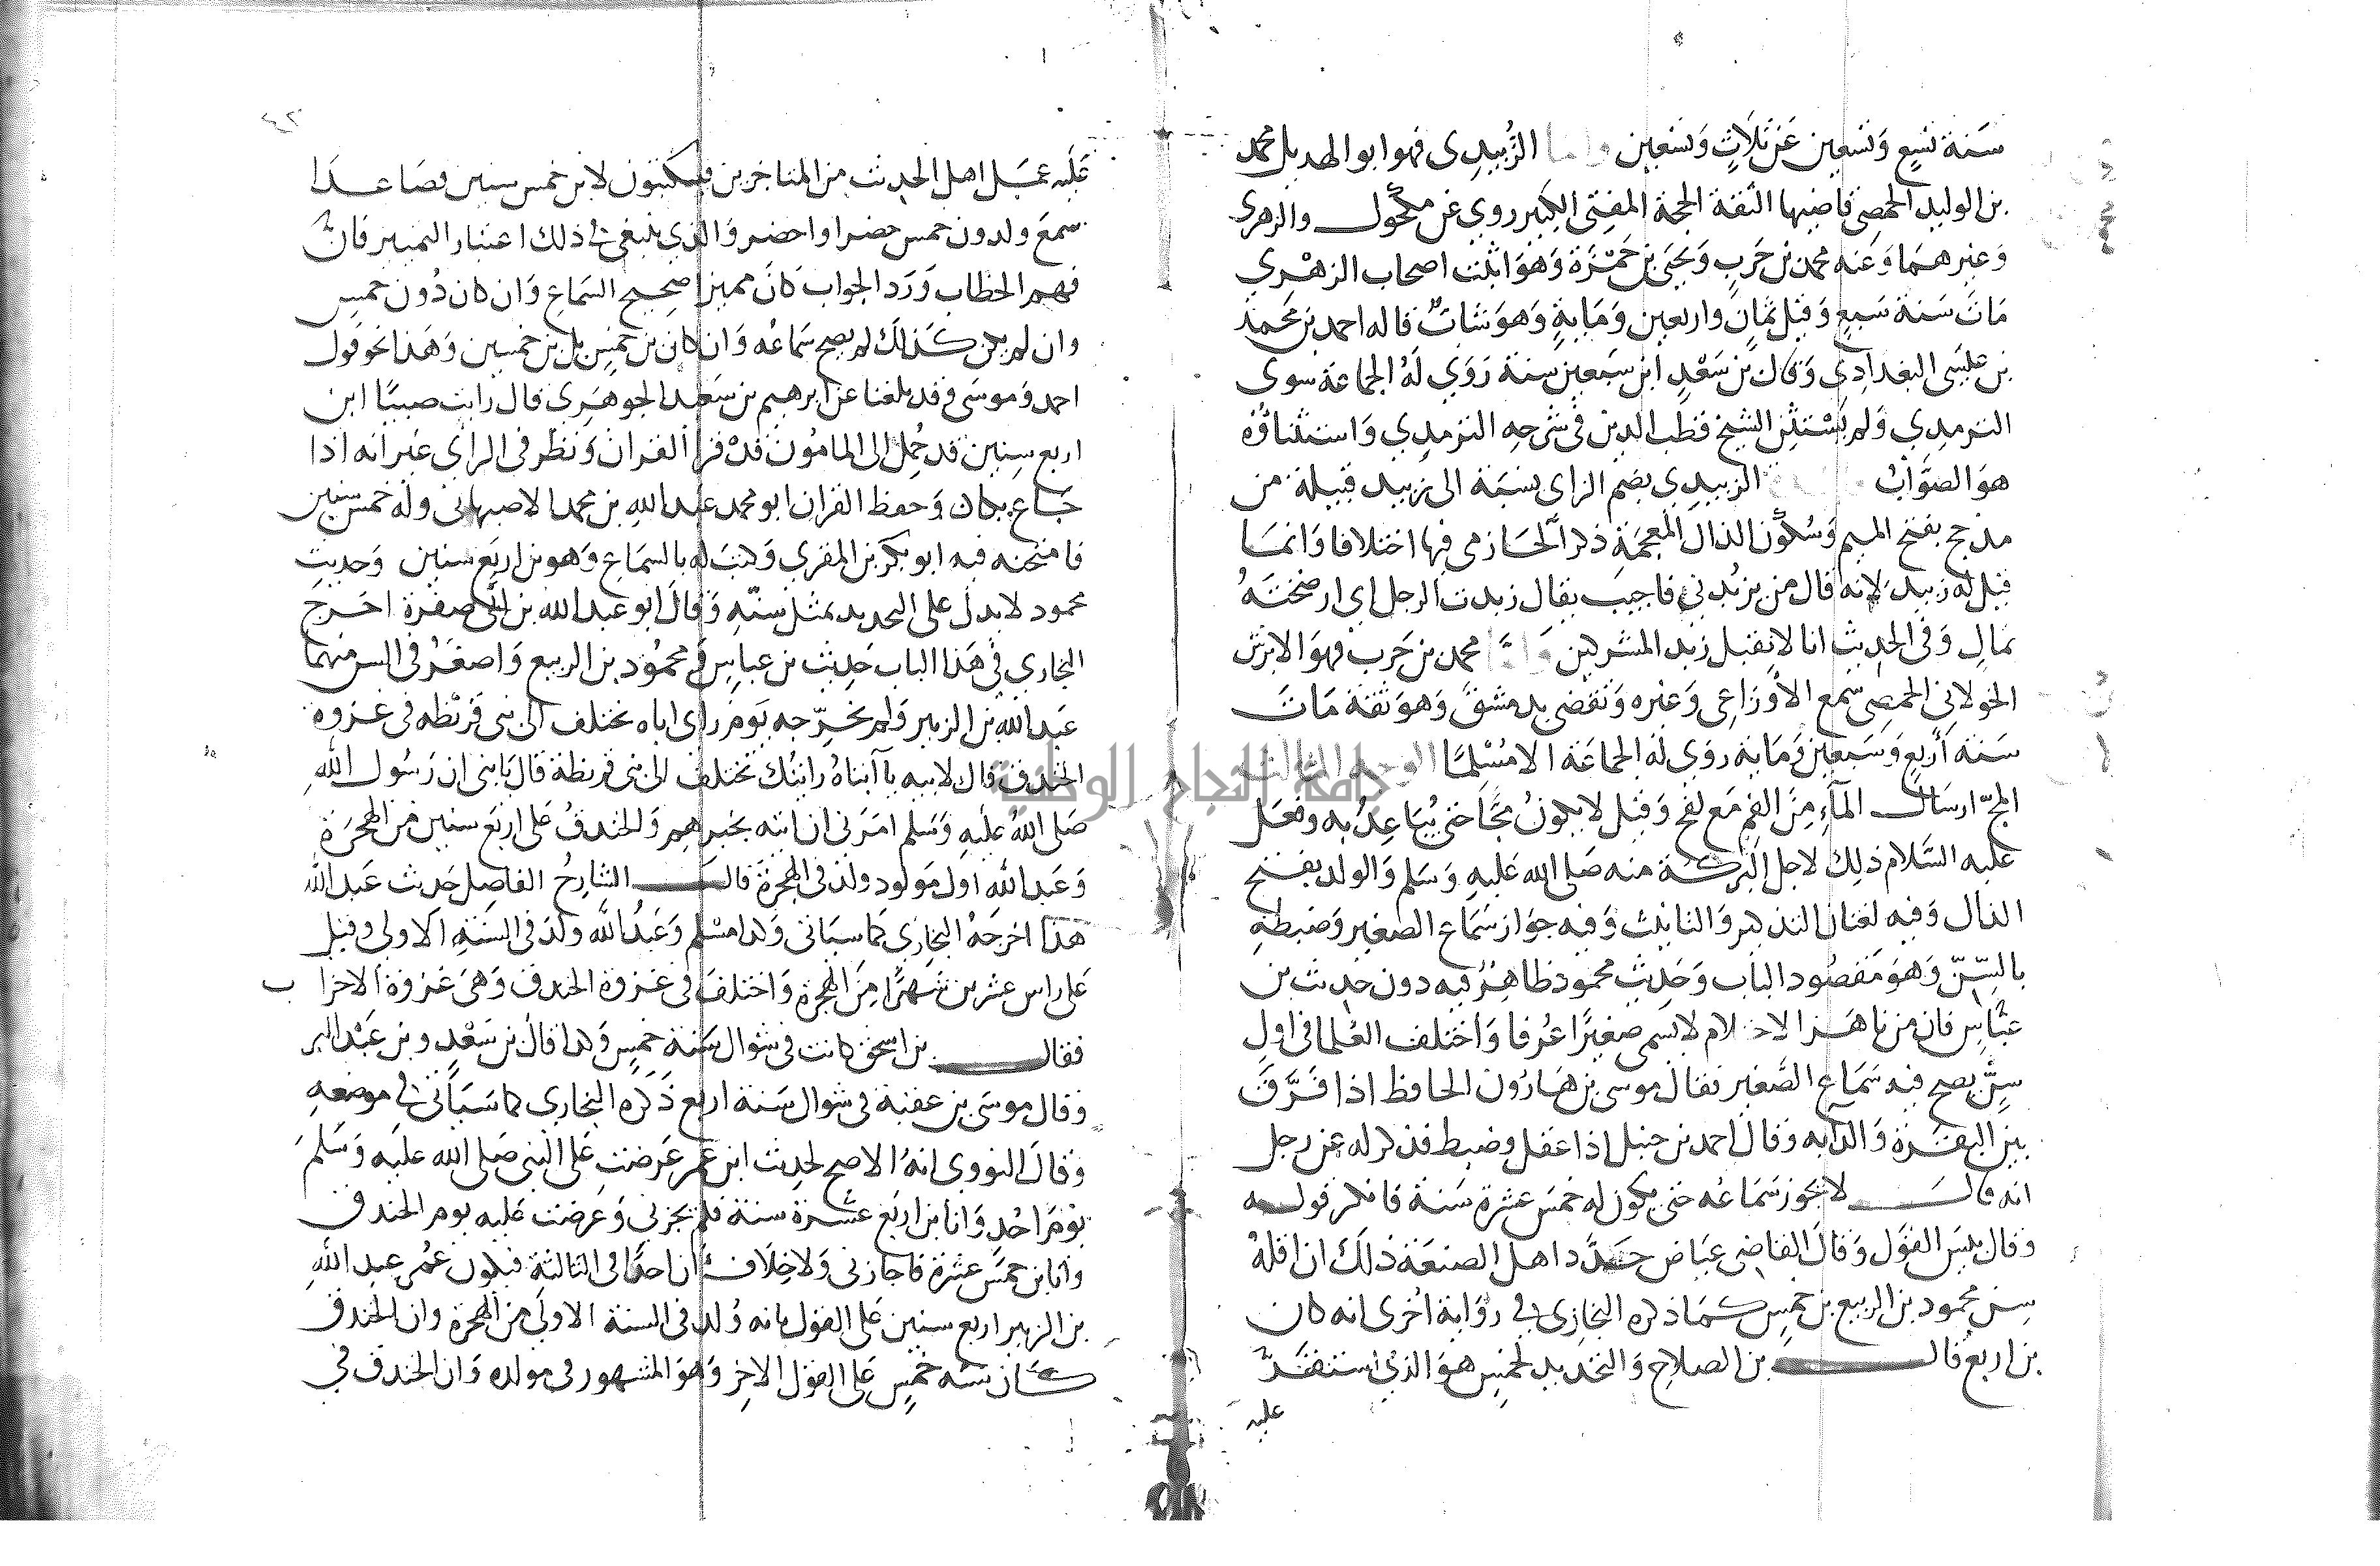 سنة تسع وتسعين عن ثلاث وتسعين واما الزبيدي فهو ابو الهديل محمد
بن الوليد الحمصي قاضيها الثقة الحجة المفتي الكبير روي عن مكحول والزهري
وغيرهما وعنه محمد بن حرب ويحيى بن حمزة وهو اثبت اصحاب الزهري
مات سنة سبع وقيل ثمان واربعين وماية وهو شاب قاله احمد بن محمد
بن عيسى البغدادي وقال بن سعد ابن سبعين سنة روي له الجماعة سوى
الترمدي ولم يستثن الشيخ قطب الدين في شرحه الترمدي واستثناؤه
هو الصواب الزبيدي بضم الزاى نسبة الى زبيد قبيلة من
مذحج بفتح الميم وسكون الذال المعجمة ذكر الحازمي فيها اختلافا وانما
قيل له زبيد لانه قال من يزبدني فاجيب يقال زبدت الرجل اي ارضخته
بمال وفي الحديث انا لا نقبل زبد المشركين واما محمد بن حرب فهو الابرش
الخولاني الحمصي سمع الاوزاعي وغيره وتقضى بدمشق وهو ثقة مات
سنة أربع وتسعين وماية روى له الجماعة الا مسلما الوجه الثالث
المج ارسال الماء من الفم مع نفخ وقيل لا يكون مجا حتى يباعد به وفعل
عليه السلام ذلك لاجل البركة منه صلى الله عليه وسلم والولد بفتح
الدال وفيه لغتان التذكير والتانيث وفيه جواز سماع الصغير وضبطه
بالسن وهو مقصود الباب وحديث محمود ظاهر فيه دون حديث بن
عباس فان من ناهز الاحتلام لا يسمى صغيرا عرفا واختلف العلما في اول
سن يصح فيه سماع الصغير فقال موسى بن هارون الحافظ اذا فرق
بين البقرة والدابه وقال احمد بن حنبل اذا عقل وضبط فذكر له عن رجل
انه قال لا يجوز سماعه حتى يكون له خمس عشرة سنة فانكر قوله
وقال بيس القول وقال القاضي عياض حدد اهل الصنعة ذلك ان اقله
سن محمود بن الربيع بن خمس كما ذكره البخاري في رواية اخرى انه كان
بن اربع قال بن الصلاح والتحديد لخمس هو الذي استقر
عليه
٤٢
عليه عمل اهل الحديث من المتاخرين فيكتبون لابن خمس سنين فصاعدا
سمع ولدون خمس حضر او احضر والذي ينبغي في ذلك اعتبار التمييز فان
فهم الخطاب ورد الجواب كان مميزا صحيح السماع وان كان دون خمس
وان لم يكن كذلك لم يصح سماعه وان كان بن خمس بل بن خمسين وهذا نحو قول
احمد وموسى وقد بلغنا عن ابرهيم بن سعيد الجوهري قال رايت صبيا ابن
اربع سنين قد حمل الى المامون قد قرا القران ونظر في الراي غير انه اذا
جاع بكا وحفظ القران ابو محمد عبد الله بن محمد الاصبهاني وله خمس سنين
فامتحنه فيه ابو بكر بن المقري وكتب له بالسماع وهو بن اربع سنين وحديث
محمود لا يدل على التحديد بمثل سنه وقال ابو عبد الله بن ابي صفرة اخرج
البخاري في هذا الباب حديث بن عباس ومحمود بن الربيع واصغر في السن منهما
عبد الله بن الزبير ولم يخرجه يوم راى اباه يختلف الى بني قريظه في غزوة
الخندق قال لابيه يا ابتاه رايتك تختلف الى بني قريظة قال يا بني ان رسول الله
صلى الله عليه وسلم امرني ان اتيه بخبرهم والخندق على اربع سنين من الهجرة
وعبد الله اول مولود ولد في الهجرة قال الشارح الفاضل حديث عبد الله
هذا اخرجه البخاري كما سياتي وكدا مسلم وعبد الله ولد في السنة الاولى وقيل
على راس عشرين شهرا من الهجرة واختلف في غزوة الخندق وهي غزوة الاحزا ب
فقال بن اسحق كانت في شوال سنة خمس وكدا قال بن سعد وبن عبد البر
وقال موسى بن عقبة في شوال سنة اربع ذكره البخاري كما سياتي في موضعه
وقال النووي انه الاصح لحديث ابن عمر عرضت على النبي صلى الله عليه وسلم
يوم احد وانا بن اربع عشرة سنة فلم يجزني وعرضت عليه يوم الخندق
وانا بن خمس عشرة فاجازني ولا خلاف ان احدا في الثالثة فيكون عمر عبد الله
بن الزبير اربع سنين على القول بانه ولد في السنة الاولى من الهجرة وان الخندق
كان سنه خمس على القول الاخر وهو المشهور في مولده وان الخندق في
جامعة النجاح الوطنية